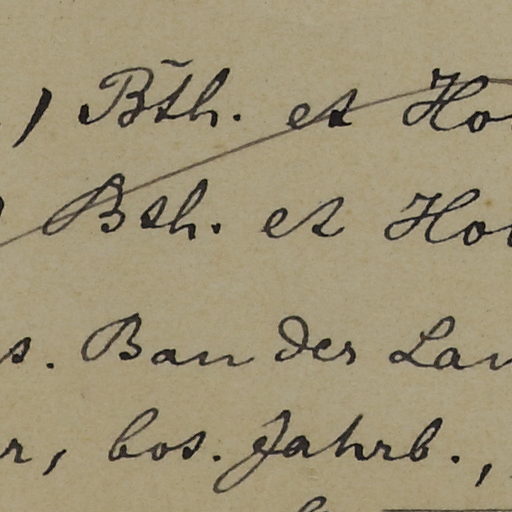 ) Bth. et Ho
) Bth. et Ho
s. Ban der Lan
r, bos. Jahrb.,